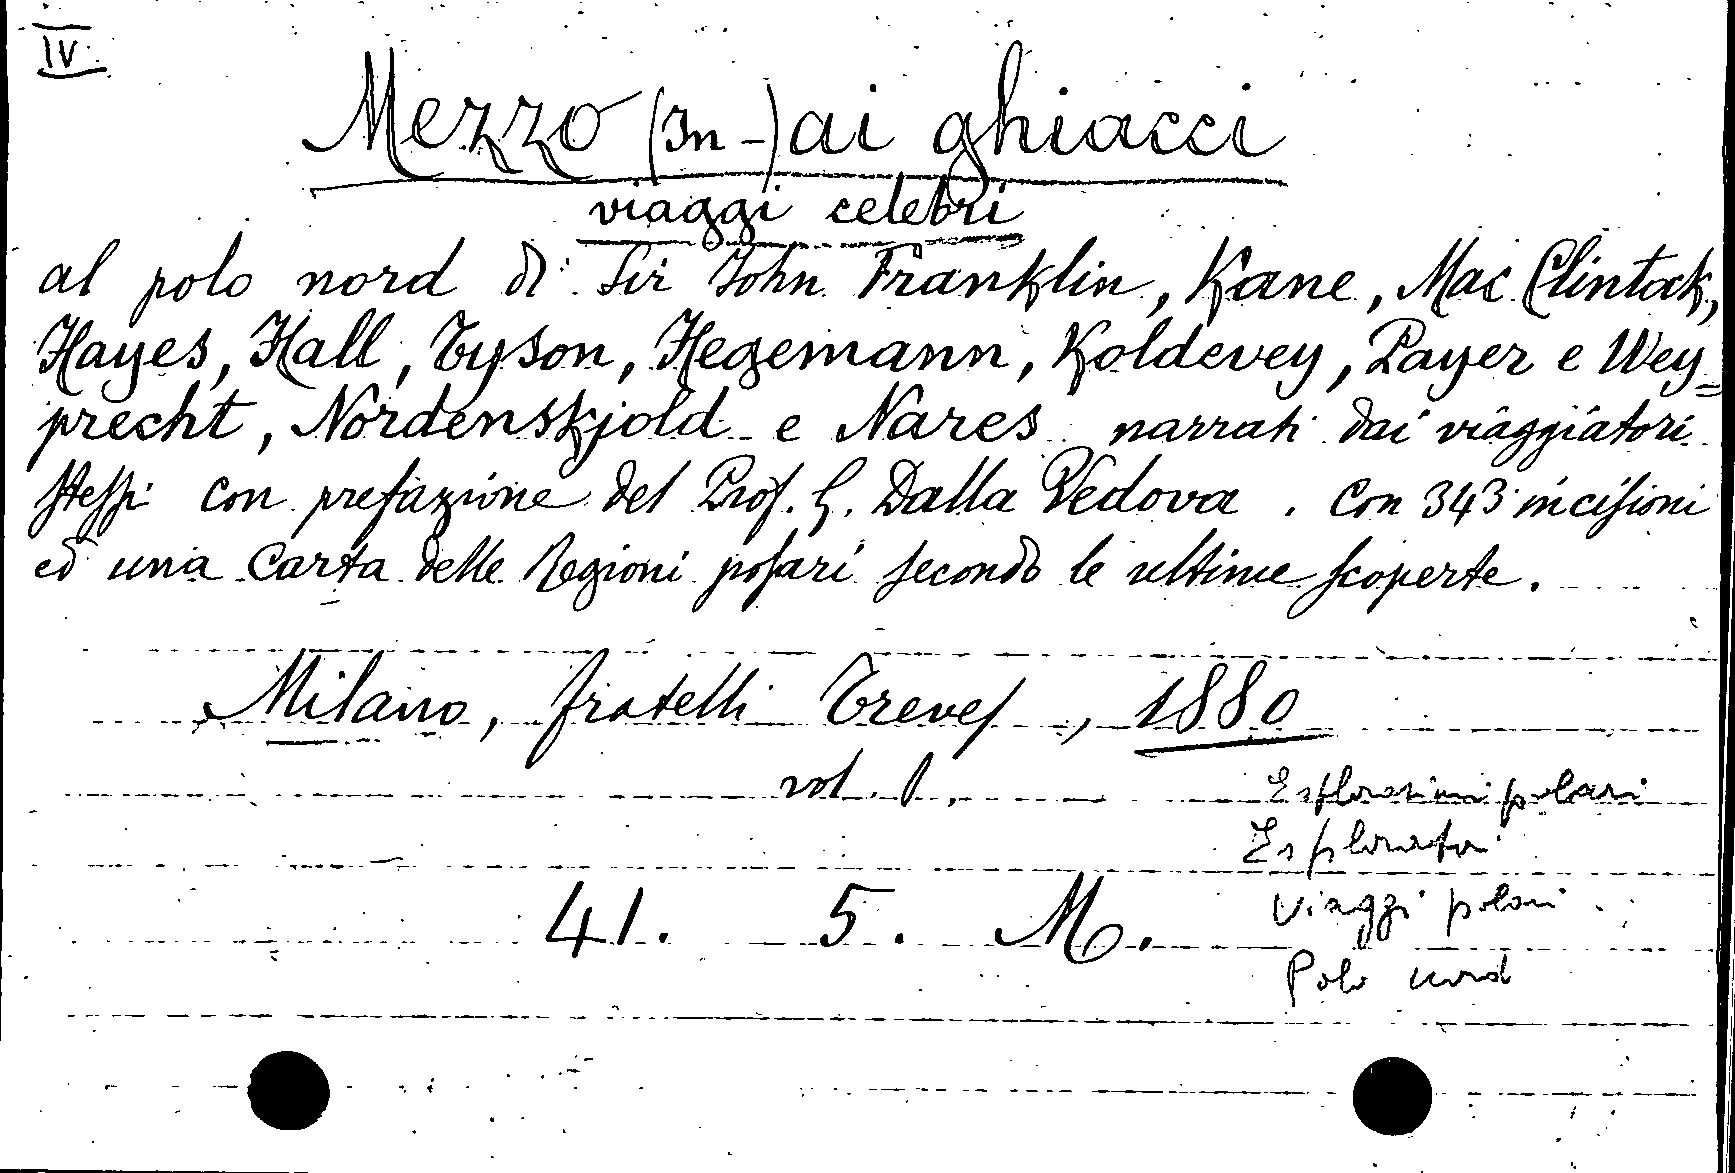 IV
Mezzo (In-) ai ghiacci
viaggi celebri
al polo nord di Sir John Franklin, Kane, Mac Clintock,
Hayes, Hall, Tyson, Hegemann, Koldevey, Payer e Wey=
precht, Nordenskjold e Nares narrati dai viaggiatori
stessi con prefazione del Prof. G. Dalla Vedova. Con 343 incisioni
ed una Carta delle Regioni polari secondo le ultime scoperte.
Milano, fratelli Treves, 1880
vol. 1.
Esplorazioni polari
Esploratori
41. 5. M.
Viaggi polari
Polo nord